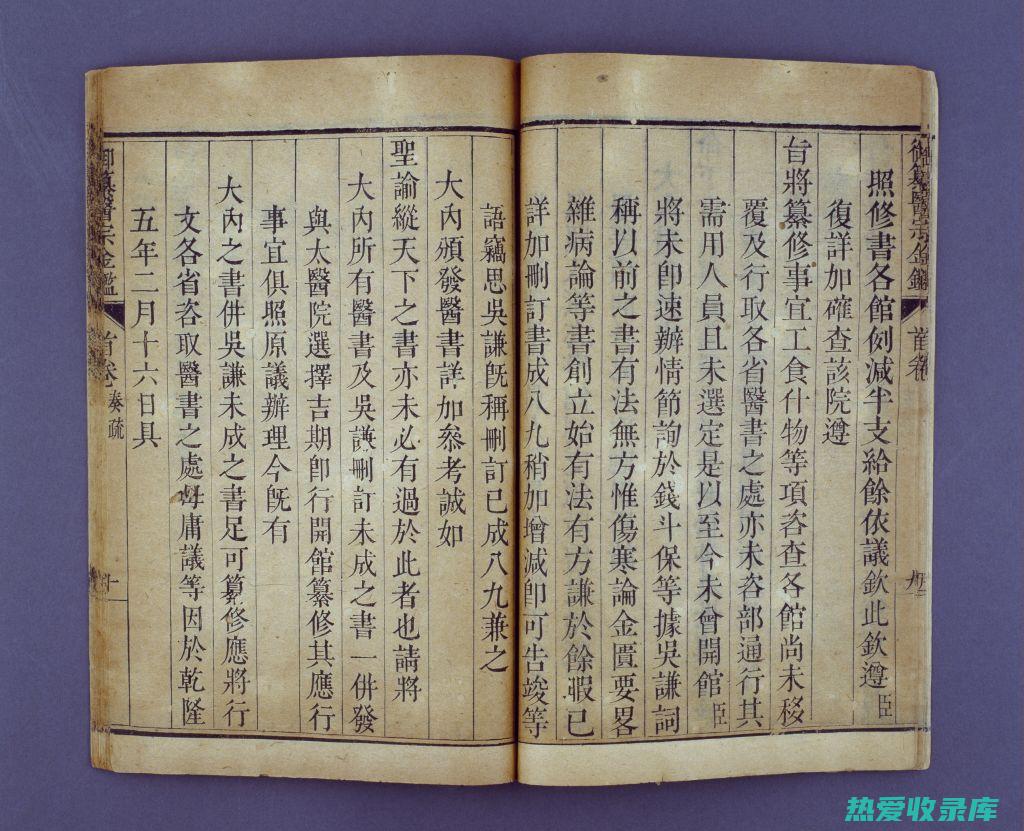 御纂醫宗金鑑 首卷
照修書各館例減半支給餘依議欽此欽遵臣
復詳加確查該院遵
旨將纂修事宜工食什物等項咨查各館尚未移
覆及行取各省醫書之處亦未咨部通行其
需用人員且未選定是以至今未曾開館臣
將未卽速辦情節詢於錢斗保等據吳謙詞
稱以前之書有法無方惟傷寒論金匱要畧
雜病論等書創立始有法有方謙於餘暇已
詳加刪訂書成八九稍加增減卽可告竣等
語竊思吳謙旣稱刪訂已成八九兼之
大內頒發醫書詳加叅考誠如
聖諭縱天下之書亦未必有過於此者也請將
大內所有醫書及吳謙刪訂未成之書一併發
與太醫院選擇吉期卽行開館纂修其應行
事宜俱照原議辦理今旣有
大內之書併吳謙未成之書足可纂修應將行
文各省咨取醫書之處毋庸議等因於乾隆
五年二月十六日具
御纂醫宗金鑑 首卷 奏疏
热爱收录库